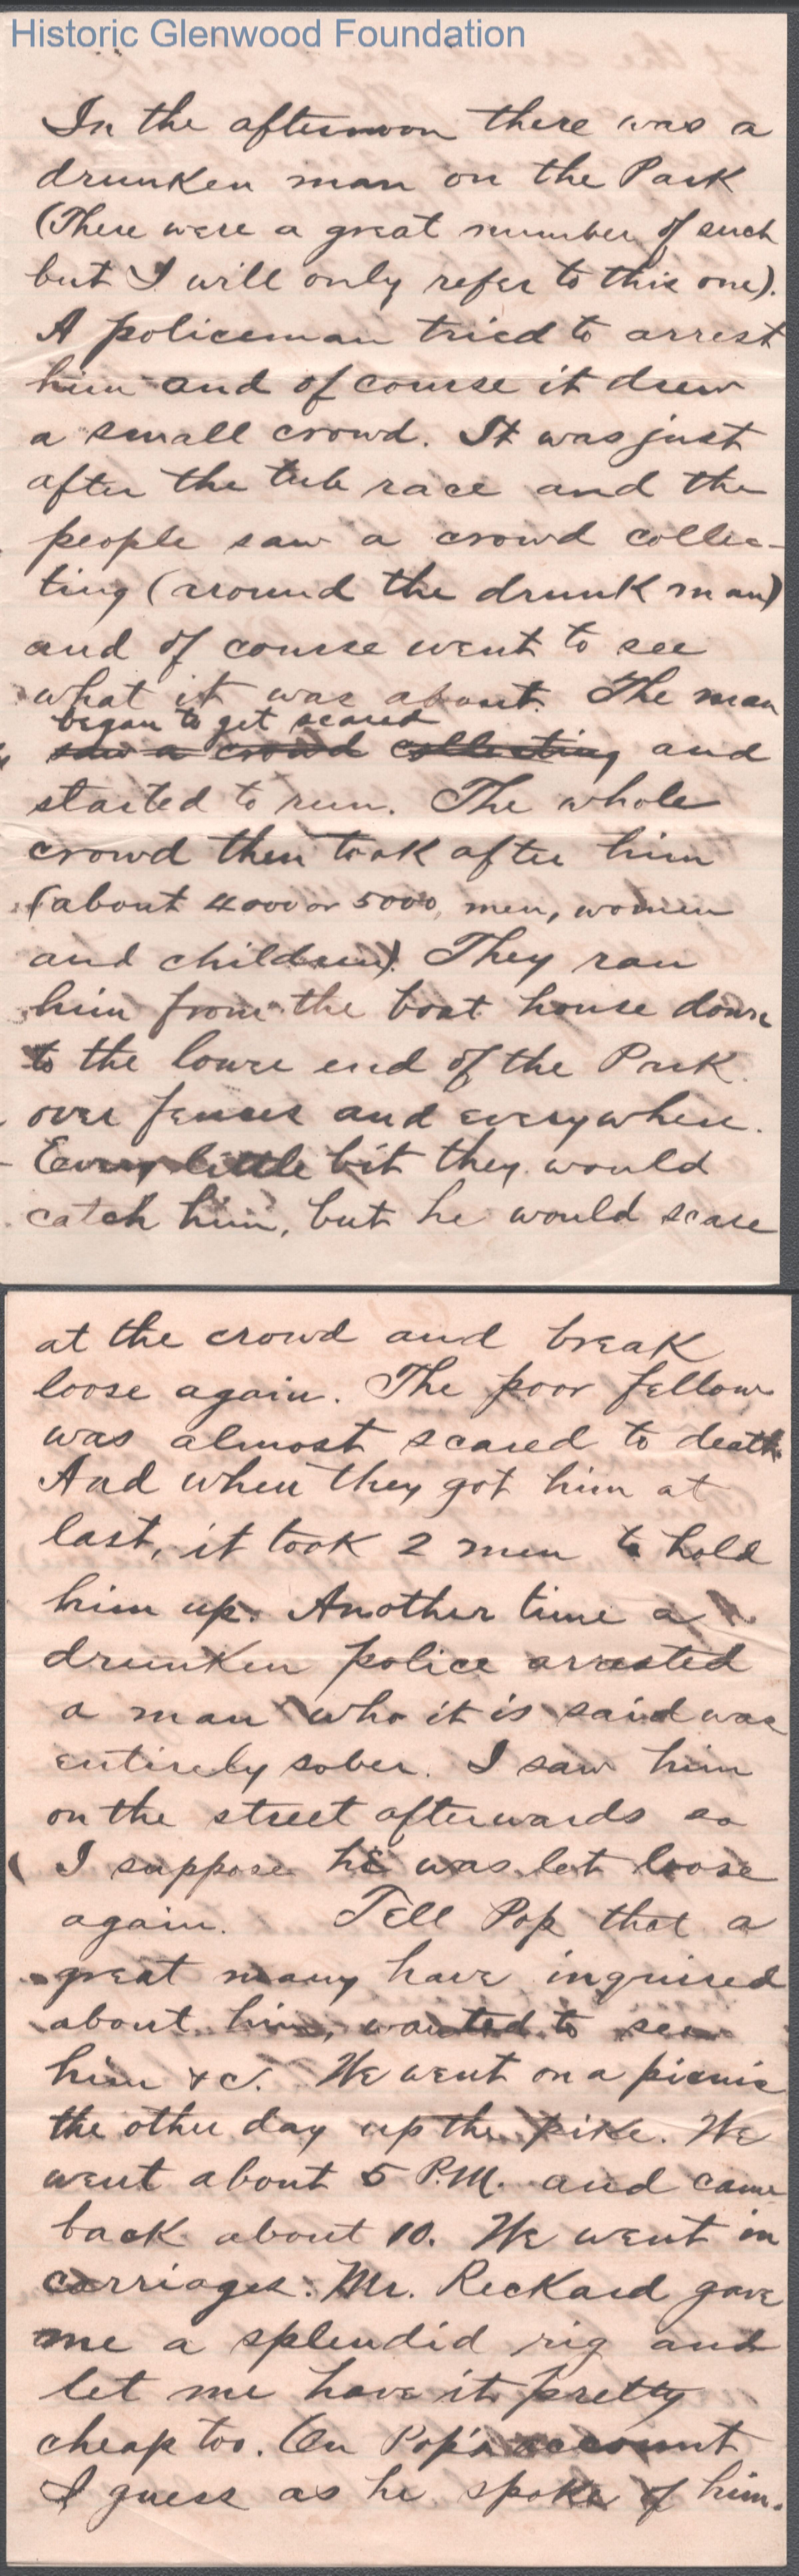 Historic Glenwood Foundation
In the afternoon there was a
drunken man on the Park
(There were a great number of such
but I will only refer to this one).
A policeman tried to arrest
him and of course it drew
a small crowd. It was just
after the tub race and the
people saw a crowd collec-
ting (around the drunk man)
and of course went to see
what it was about. The man
began to get scared
saw a crowd collecting and
started to run. The whole
crowd then took after him
(about 4000 or 5000, men, women
and children). They ran
him from the boat house down
to the lower end of the Park
over fences and everywhere.
Every little bit they would
catch him, but he would scare
at the crowd and break
loose again. The poor fellow
was almost scared to death.
And when they got him at
last, it took 2 men to hold
him up. Another time a
drunken police arrested
a man who it is said was
entirely sober. I saw him
on the street afterwards so
I suppose he was let loose
again. Tell Pop that a
great many have inquired
about him, wanted to see
him &c. We went on a picnic
the other day up the pike. We
went about 5 P.M. and came
back about 10. We went in
carriages. Mr. Reckard gave
me a splendid rig and
let me have it pretty
cheap too. On Pop's account
I guess as he spoke of him.